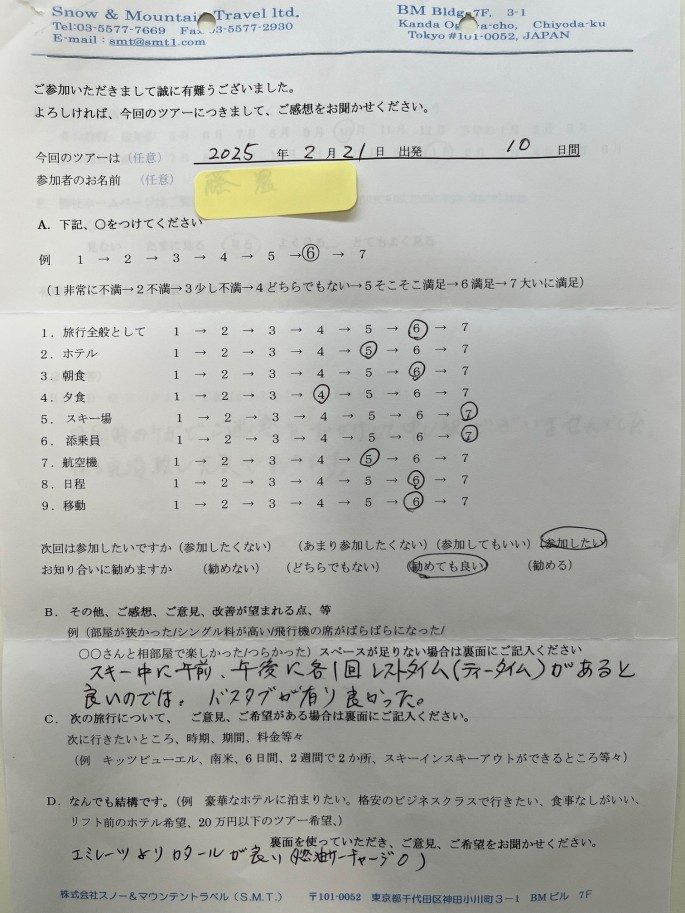 Snow & Mountain Travel ltd.
BM Bldg. 7F, 3-1
Tel:03-5577-7669 Fax 03-5577-2930
Kanda Og a-cho, Chiyoda-ku
E-mail : smt@smt1.com
Tokyo #101-0052, JAPAN
ご参加いただきまして誠に有難うございました。
よろしければ、今回のツアーにつきまして、ご感想をお聞かせください。
今回のツアーは（任意） 2025 年 2 月 21 日 出発 10 日間
参加者のお名前 （任意）
A. 下記、○をつけてください
例 1 → 2 → 3 → 4 → 5 → ⑥ → 7
（1 非常に不満→2 不満→3 少し不満→4 どちらでもない→5 そこそこ満足→6 満足→7 大いに満足）
1．旅行全般として 1 → 2 → 3 → 4 → 5 → ⑥ → 7
2．ホテル 1 → 2 → 3 → 4 → ⑤ → 6 → 7
3．朝食 1 → 2 → 3 → 4 → 5 → ⑥ → 7
4．夕食 1 → 2 → 3 → ④ → 5 → 6 → 7
5． スキー場 1 → 2 → 3 → 4 → 5 → 6 → ⑦
6． 添乗員 1 → 2 → 3 → 4 → 5 → 6 → ⑦
7．航空機 1 → 2 → 3 → 4 → ⑤ → 6 → 7
8．日程 1 → 2 → 3 → 4 → 5 → ⑥ → 7
9．移動 1 → 2 → 3 → 4 → 5 → ⑥ → 7
次回は参加したいですか（参加したくない） （あまり参加したくない）（参加してもいい）（参加したい）
お知り合いに勧めますか （勧めない） （どちらでもない） （勧めても良い） （勧める）
B． その他、ご感想、ご意見、改善が望まれる点、等
例（部屋が狭かった/シングル料が高い/飛行機の席がばらばらになった/
○○さんと相部屋で楽しかった/つらかった）スペースが足りない場合は裏面にご記入ください
スキー中に午前、午後に各1回 レストタイム（ティータイム）があると
良いのでは。 バスタブが有り良かった。
C． 次の旅行について、 ご意見、ご希望がある場合は裏面にご記入ください。
次に行きたいところ、時期、期間、料金等々
（例 キッツビューエル、南米、6 日間、2 週間で 2 か所、スキーインスキーアウトができるところ等々）
D．なんでも結構です。（例 豪華なホテルに泊まりたい。格安のビジネスクラスで行きたい、食事なしがいい、
リフト前のホテル希望、20 万円以下のツアー希望、）
裏面を使っていただき、ご意見、ご希望をお聞かせください。
エミレーツよりカタールが良い（燃油サーチャージ0）
株式会社スノー＆マウンテントラベル（S.M.T.） 〒101-0052 東京都千代田区神田小川町３－１ BM ビル 7F